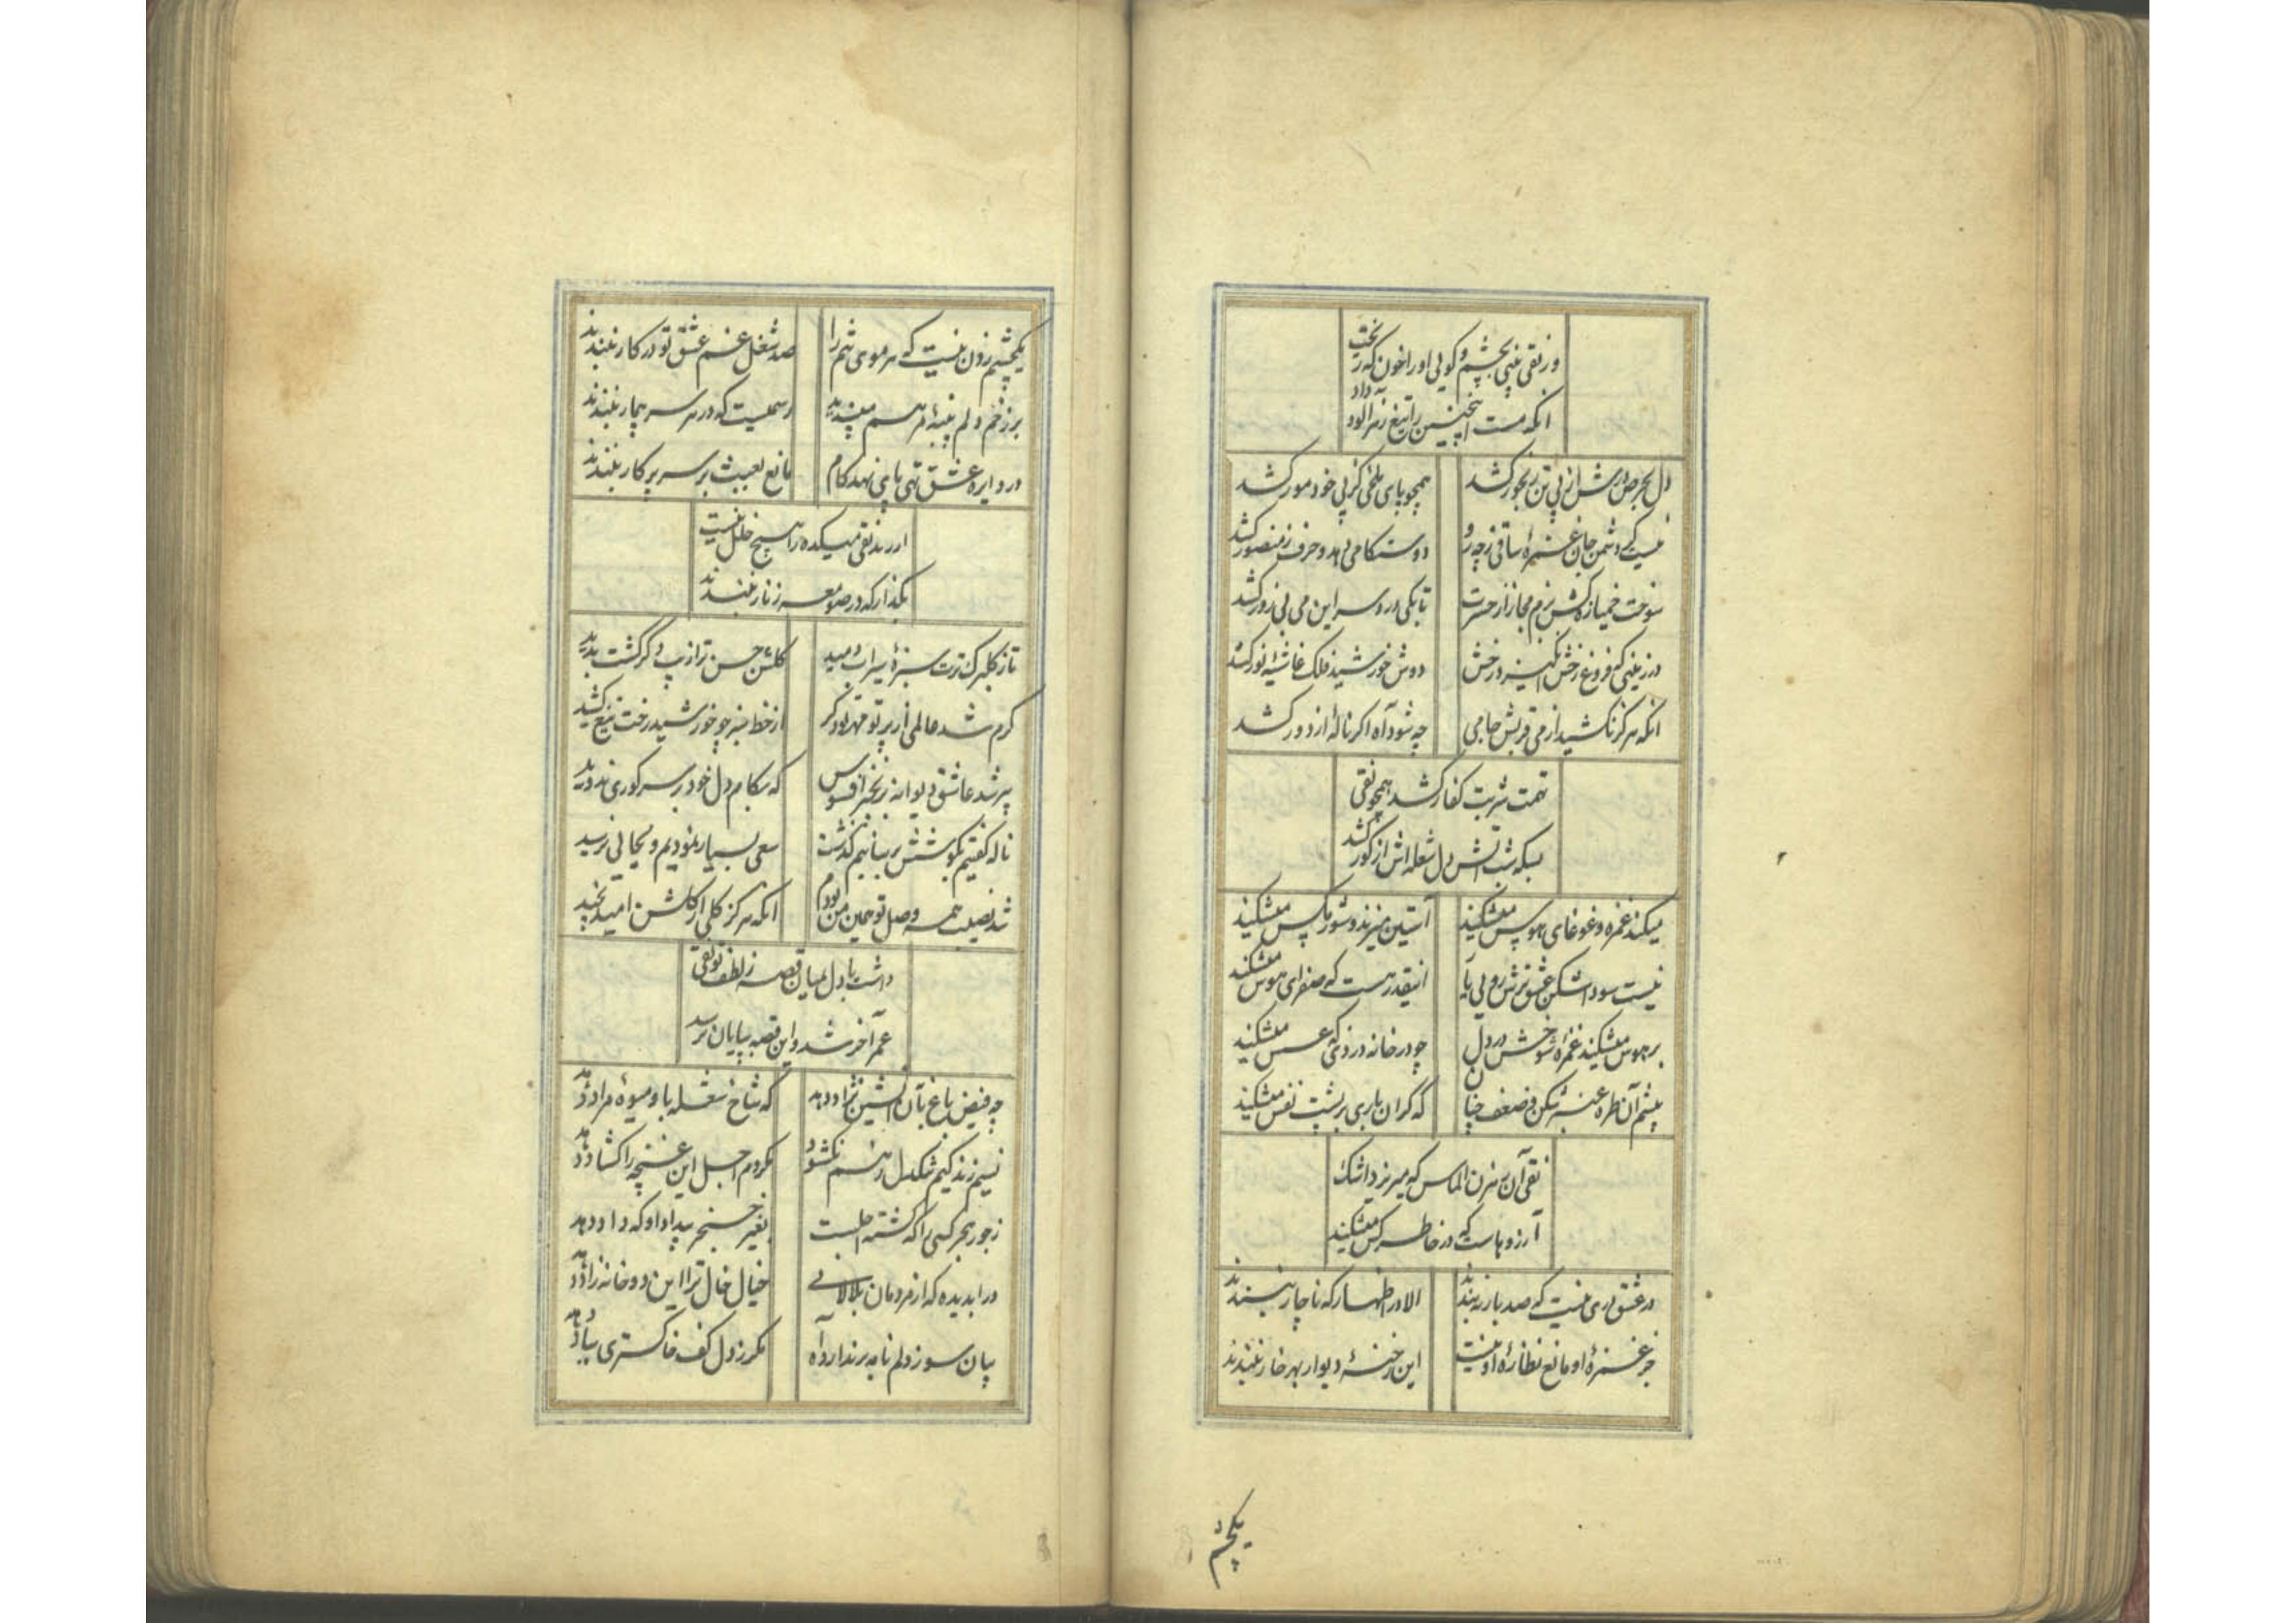 ور نقی بینی بچشم و کوئی او را خون که ریخت
انکه مست اینچنین را تیغ زهرالود داد
دل بحر صورش از پی تن رنجور کشد همچو پای ملخی کز پی خود مور کشد
نیست کس دشمن جان غمزه ساقی ز چه رو دوستکامی دهد و حرف ز منصور کشد
سوخت خمیازه کش بزم مجاز از حسرت تا بکی درد سر این می بی زور کشد
در زمینی که فروغ رخش انگیزد رخش دوش خورشید فلک غاشیه نور کشد
انکه هرگز نکشید از می قربش جامی چه شود آه اکر ناله از دور کشد
تهمت شربت کفار کشد همچو نقی
بسکه شب آتش دل شعله اش از کور کشد
میکند غمزه و غوغای هوس میشکند آستین میزند و شور مکس میشکند
نیست سودا شکن عشق ترش رویی یار اینقدر هست که صفرای هوس میشکند
بر هوس میشکند غمزه شوخش در دل چو در خانه دزدی که عسس میشکند
پیشم آن طره عنبر شکن ضعف چنان که کران باری بر پشت نفس میشکند
نقی آن سرزن الماس که میریزد اشک
آرزوهاست که در خاطر کس میشکند
در عشق دری نیست که صد بار نه بندند الا در اظهار که ناچار ببندند
جز غمزه او مانع نظاره او نیست این رخنه دیوار بهر خار نبندند
یکچشم
یکچشم زدن نیست که هر موی تنم را صد شغل غم عشق تو در کار نبندند
بر زخم دلم پنبه مرهم مپسندید رسمیست که در هر سر بیمار نبندند
در دایره عشق تهی پای نهد کام مانع بعبث بر سر پرکار نبندند
ار رند نقی میکده را هیچ خلل نیست
بگذار که در صومعه زنار نبندند
تا ز کلبرک ترت سبزه سیراب دمید کلشن حسن ترا زیب دکر کشت پدید
کرم شد عالمی از پرتو مهر تو دکر از خط سبز چو خورشید رخت تیغ کشید
پیر شد عاشق دیوانه ز زنجیر افسوس که بکام دل خود بر سر کوری ندوید
ناله کفتیم بکوشش برسانیم گذشت سعی بسیار نمودیم و بجائی نرسید
شد نصیب همه وصل تو همین من بودم انکه هرکز کلی از کلشن امید نچید
داشت با دل بمیان قصه زلف تو نقی
عمر آخر شد و این قصه بپایان نرسید
چه فیض باغ بآن آتشین نژاد دهد که شاخ شعله باو میوه مراد دهد
نسیم زندکیم شکدل ز هم نکشود مکر دم اجل این غنچه را کشاد دهد
ز جور هجر کسی را که کشته اجلست بغیر خنجر بیداد او که داد دهد
درا بدیده که از مردمان بلالانی خیال خال ترا این دو خانه زاد دهد
بیان سوز دلم نامه بر ندارد آه مکر ز دل کف خاکستری بباد دهد